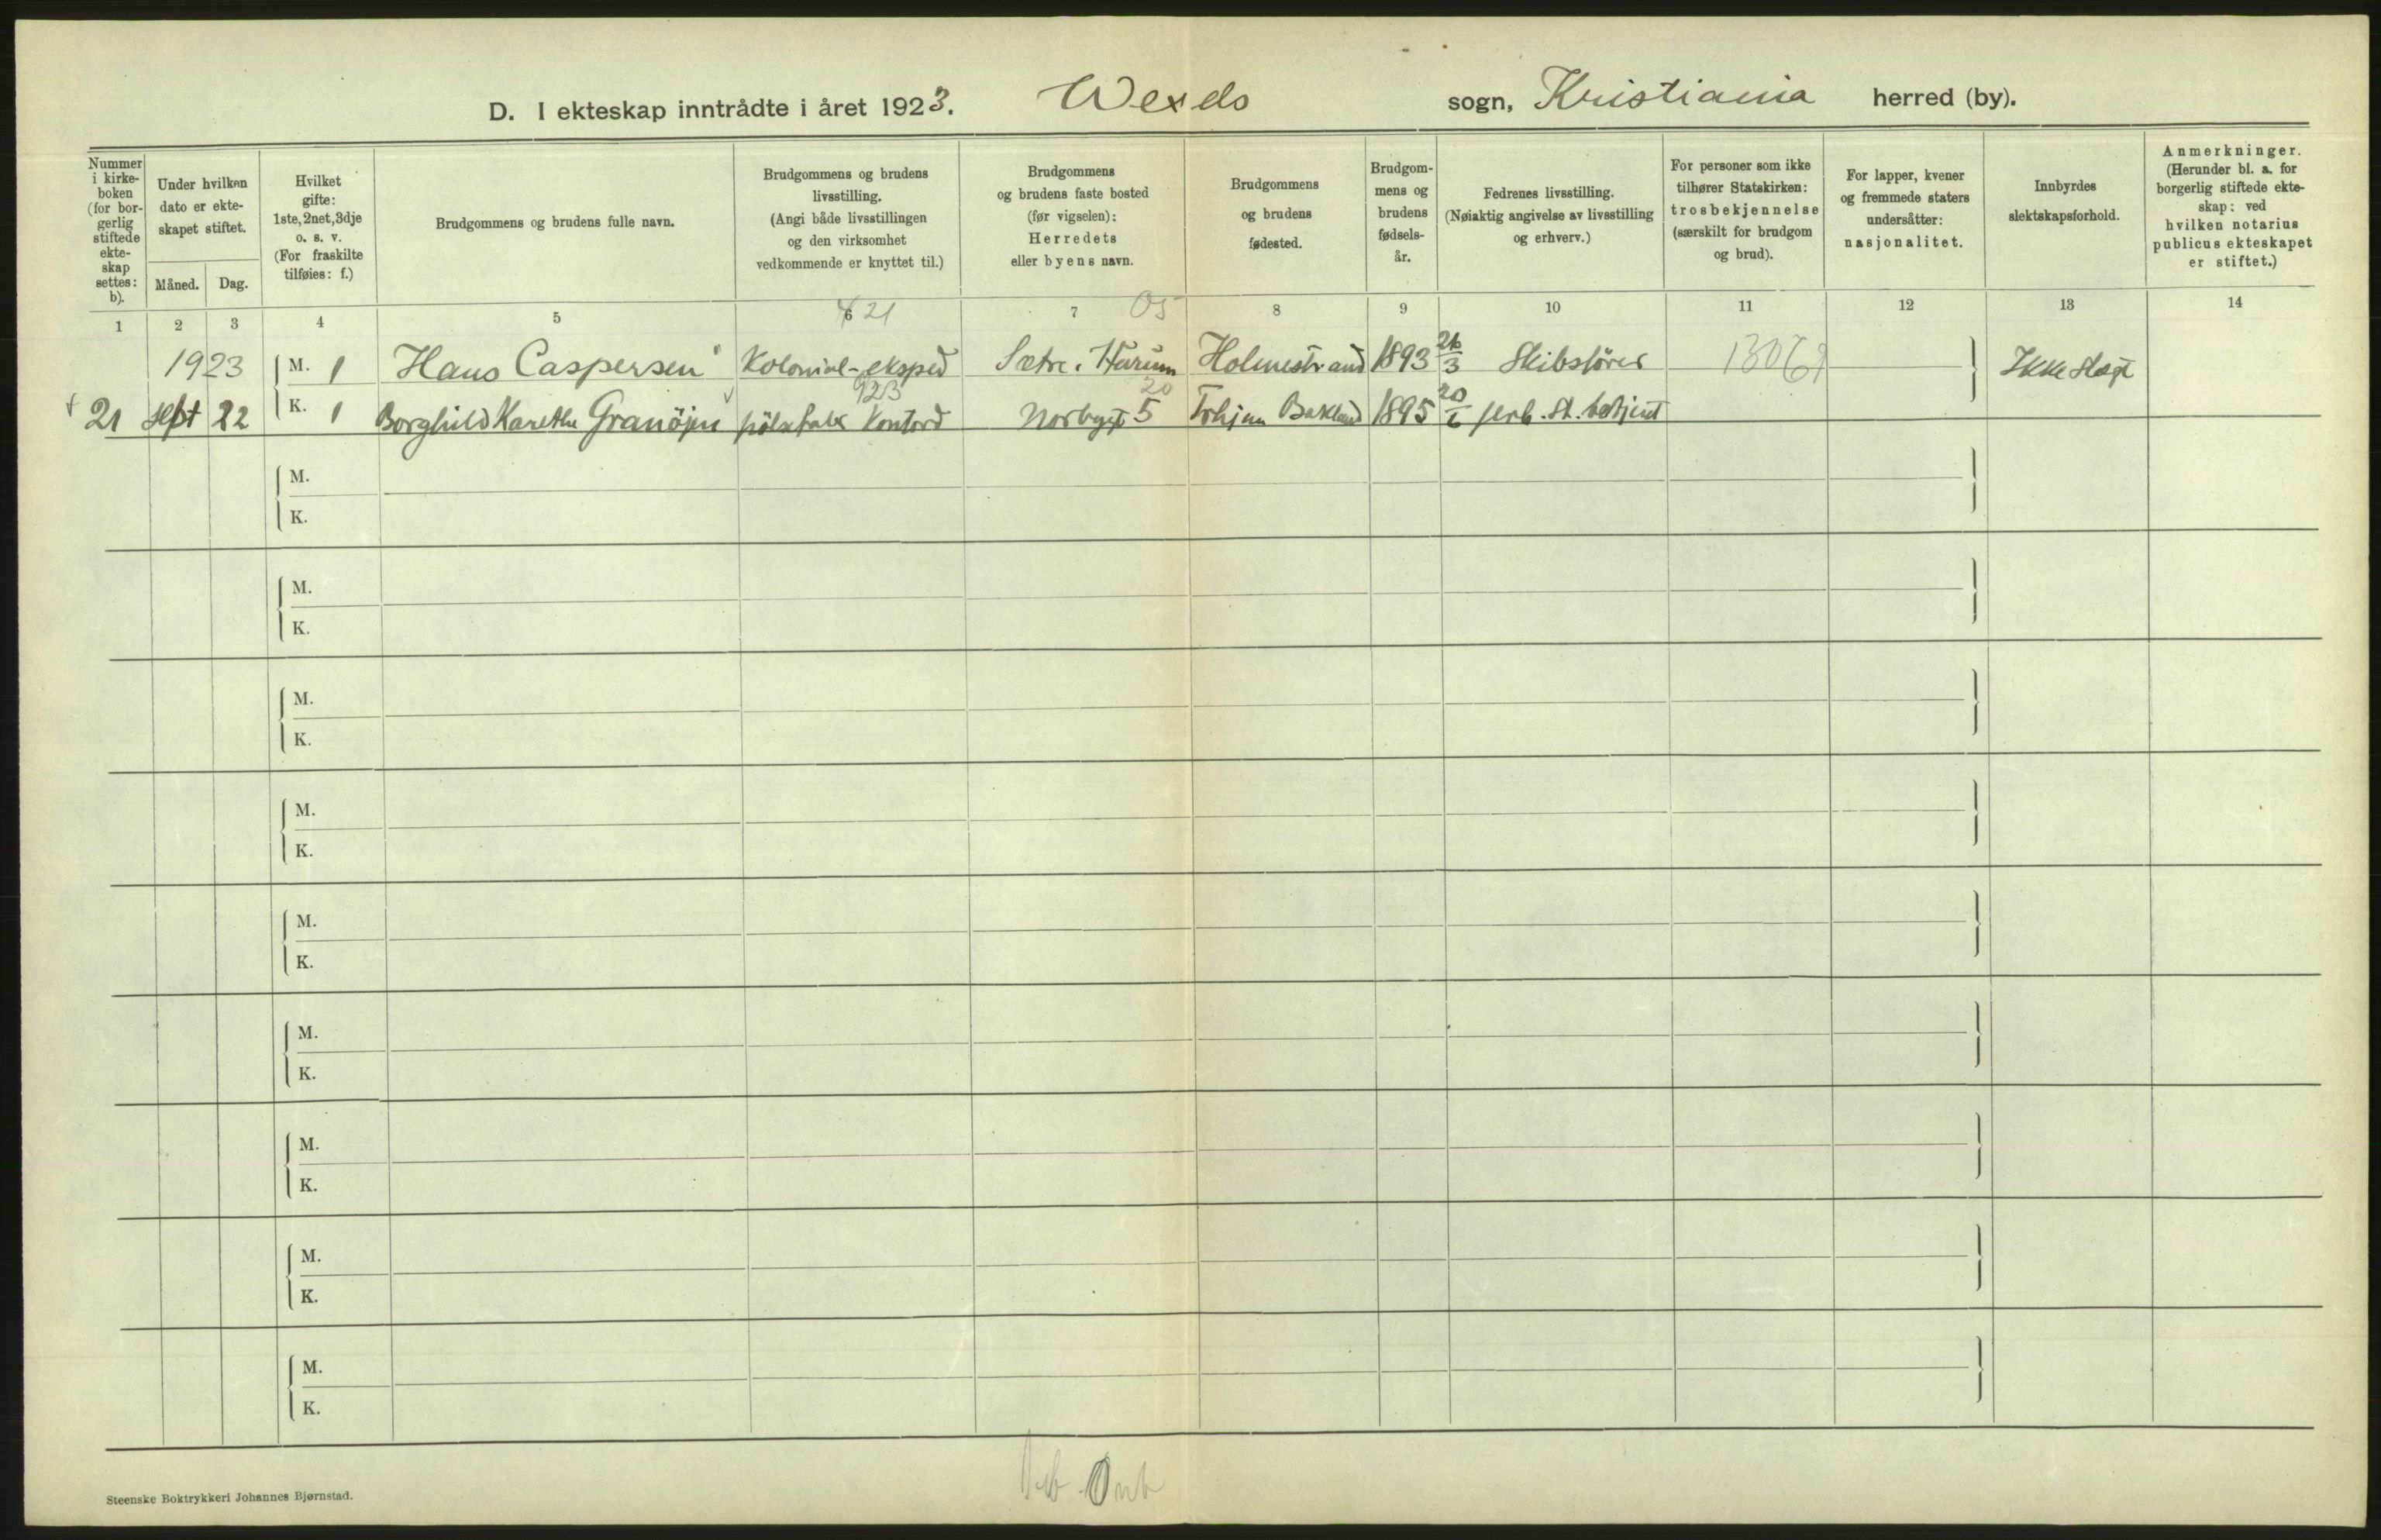 D. I ekteskap inntrådte i året 1923. Wexels sogn, Kristiania herred (by).
Nummer i kirke-boken (for bor-gerlig stiftede ekte-skap settes: b).
Under hvilken dato er ekte-skapet stiftet.
Måned. Dag.
Hvilket gifte: 1ste, 2net, 3dje o. s. v. (For fraskilte tilføies: f.)
Brudgommens og brudens fulle navn.
Brudgommens og brudens livsstilling. (Angi både livsstillingen og den virksomhet vedkommende er knyttet til.)
Brudgommens og brudens faste bosted (før vigselen): Herredets eller byens navn.
Brudgommens og brudens fødested.
Brudgom-mens og brudens fødsels-år.
Fedrenes livsstilling. (Nøiaktig angivelse av livsstilling og erhverv.)
For personer som ikke tilhører Statskirken: trosbekjennelse (særskilt for brudgom og brud).
For lapper, kvener og fremmede staters undersåtter: nasjonalitet.
Innbyrdes slektskapsforhold.
Anmerkninger. (Herunder bl. a. for borgerlig stiftede ekte-skap: ved hvilken notarius publicus ekteskapet er stiftet.)
1 2 3 4 5 6 7 8 9 10 11 12 13 14
21 05
1923 M. 1 Hans Caspersen Kolonial-eksped Sætre i Hurum Holmestrand 1893 26/3 Skibsfører Ikke slegt
923 20
21 sept 22 K. 1 Borghild Karethe Granöjen pölsefabr Kontord Norbygt 5 Trhjem Bakland 1895 20/6 jerb. st. betjent
M.
K.
M.
K.
M.
K.
M.
K.
M.
K.
M.
K.
M.
K.
M.
K.
M.
K.
Steenske Boktrykkeri Johannes Bjørnstad.